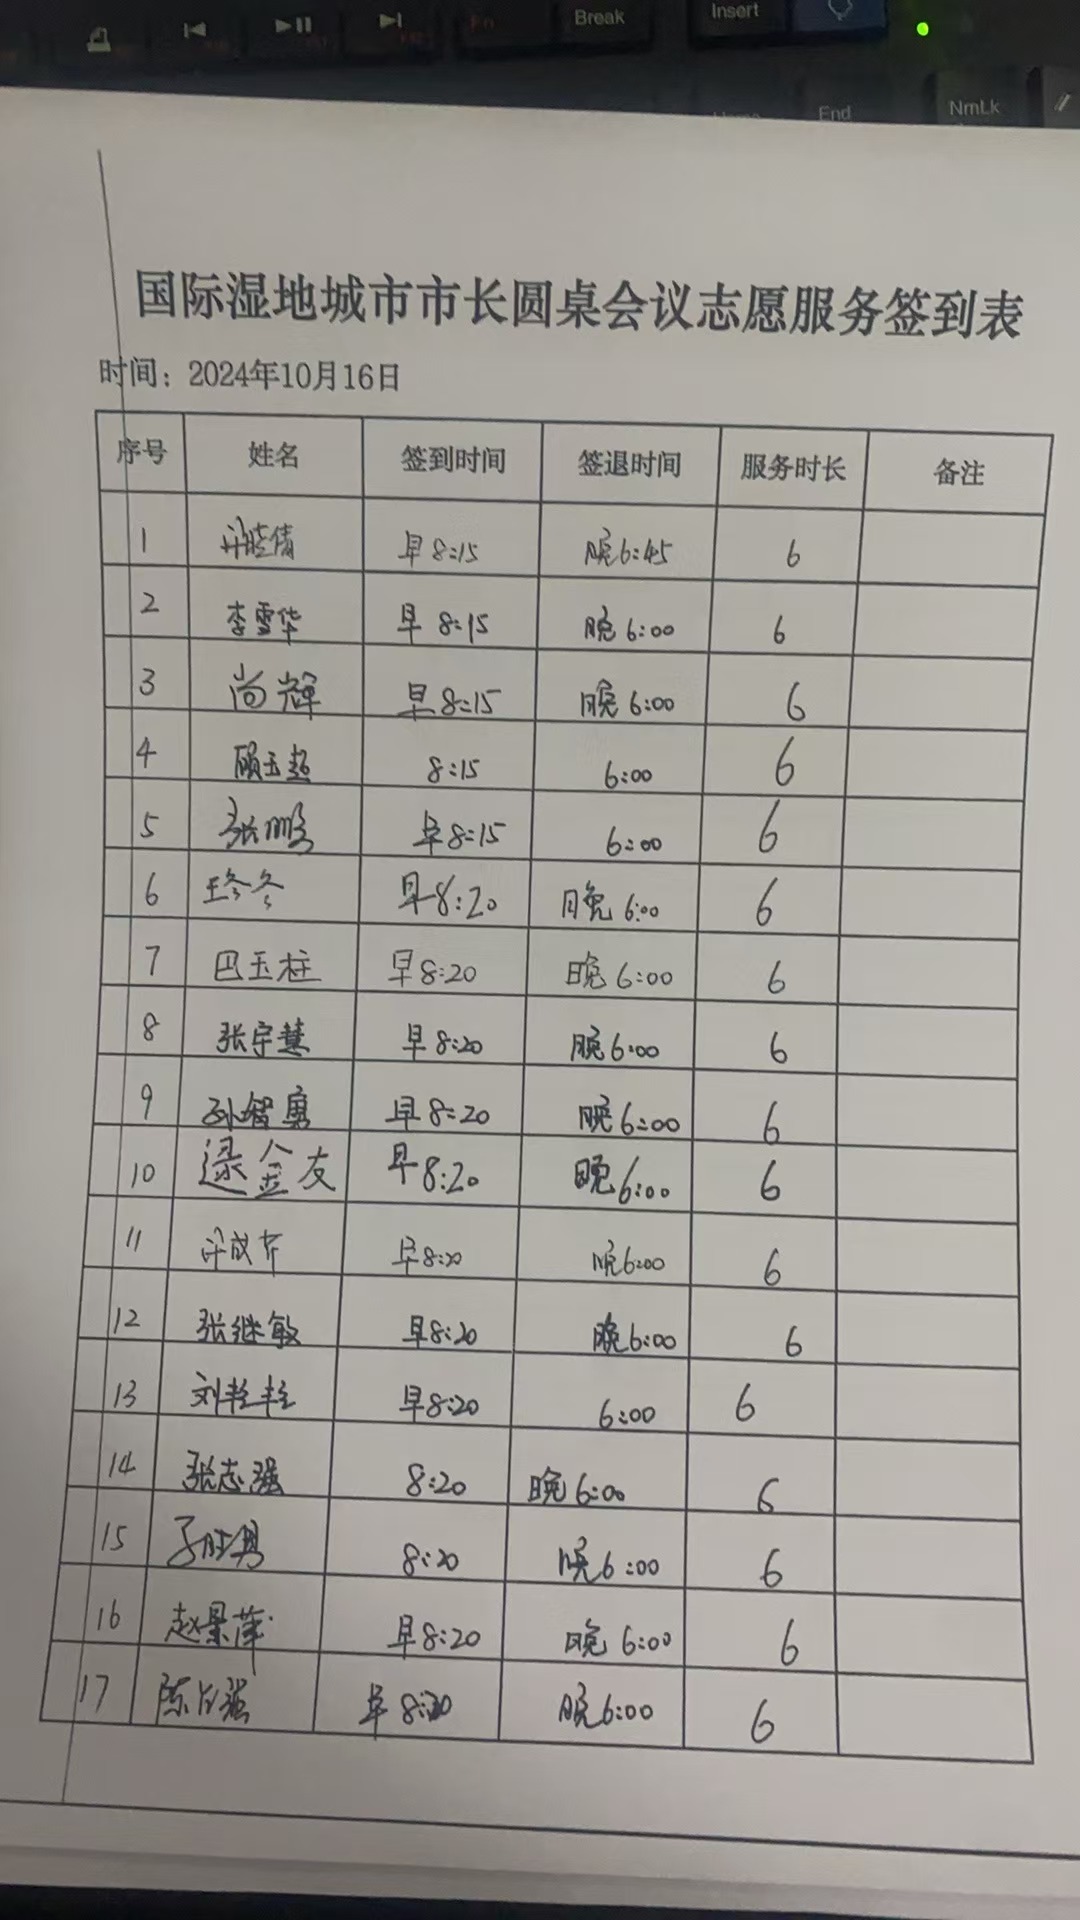 Break
Insert
End
NmLk
国际湿地城市市长圆桌会议志愿服务签到表
时间：2024年10月16日
序号 姓名 签到时间 签退时间 服务时长 备注
1 早8:15 晚6:45 6
2 李雪华 早8:15 晚6:00 6
3 尚辉 早8:15 晚6:00 6
4 顾玉超 8:15 6:00 6
5 张鹏 早8:15 6:00 6
6 王冬冬 早8:20 晚6:00 6
7 巴玉柱 早8:20 晚6:00 6
8 张宇慧 早8:20 晚6:00 6
9 孙智勇 早8:20 晚6:00 6
10 逯金友 早8:20 晚6:00 6
11 早8:20 晚6:00 6
12 张继敏 早8:20 晚6:00 6
13 刘艳艳 早8:20 6:00 6
14 张志强 8:20 晚6:00 6
15 8:20 晚6:00 6
16 赵景萍 早8:20 晚6:00 6
17 早8:20 晚6:00 6